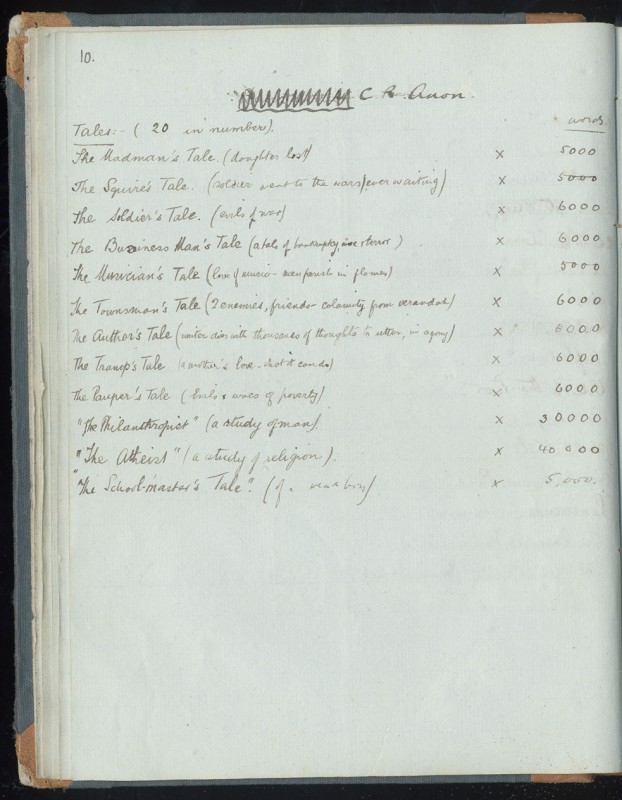 10.
C R. Anon.
words
Tales:- (20 in number).
The Madman's Tale. (daughter lost) x 5000
The Squire's Tale. (soldier went to the wars, ever waiting) x 5000
The Soldier's Tale. (evils of war) x 6000
The Business Man's Tale (a tale of bankruptcy, terror) x 6000
The Musician's Tale (love of music - perish in flames) x 5000
The Townsman's Tale (2 enemies, friends - calamity from verandah) x 6000
The Author's Tale (writer dies with thousands of thoughts to utter, in agony) x 6000
The Tramp's Tale (a mother's love - that it can do) x 6000
The Pauper's Tale (Evils & woes of poverty) x 6000
"The Philanthropist" (a study of man) x 30000
"The Atheist" (a study of religion). x 40000
"The School-master's Tale". (of a boy) x 5,000.